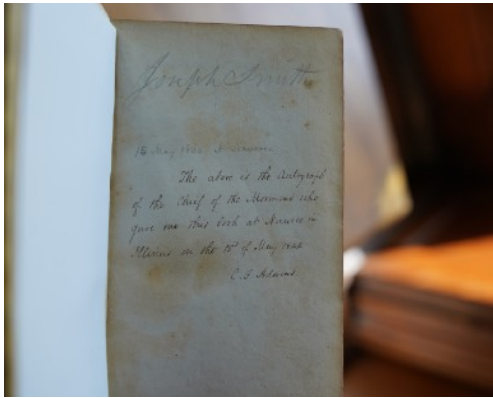 Joseph Smith
15 May 1844.
The above is the Autograph
of the Chief of the Mormons who
gave me this book at Nauvoo in
Illinois on the 15th of May 1844
C. F. Adams